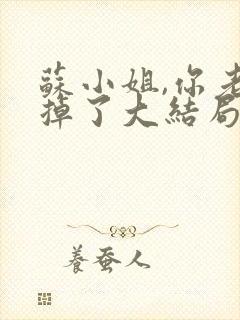 蘇小姐,你老
掉了大結局
養蚕人